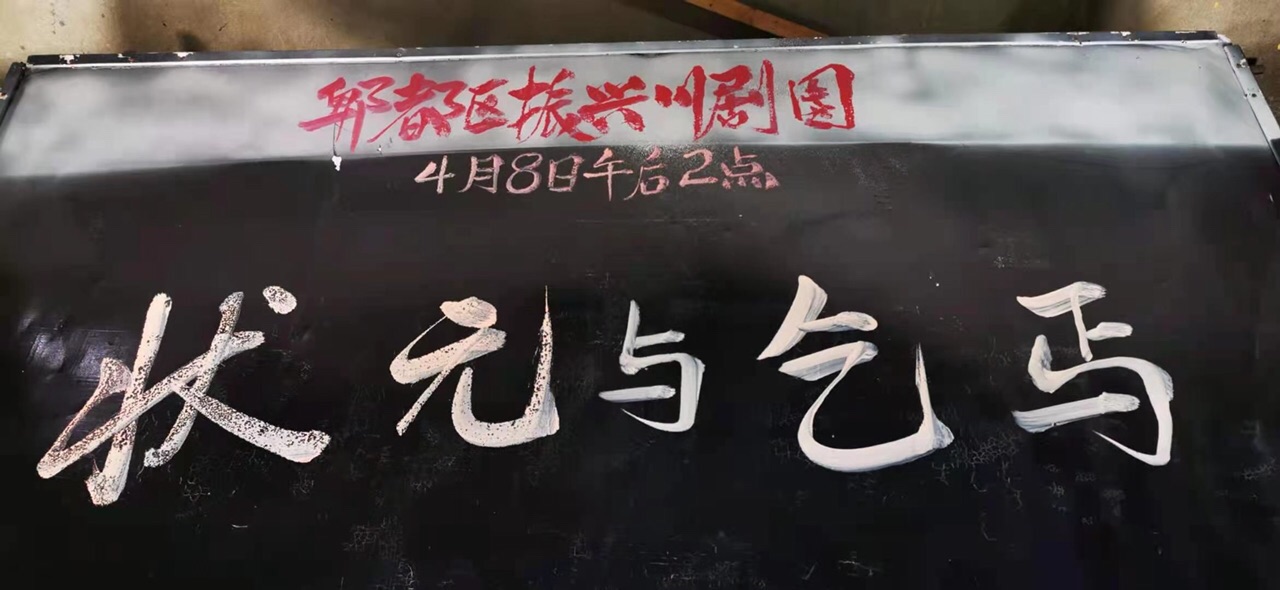 郫都区振兴川剧团
4月8日午后2点
状元与乞丐